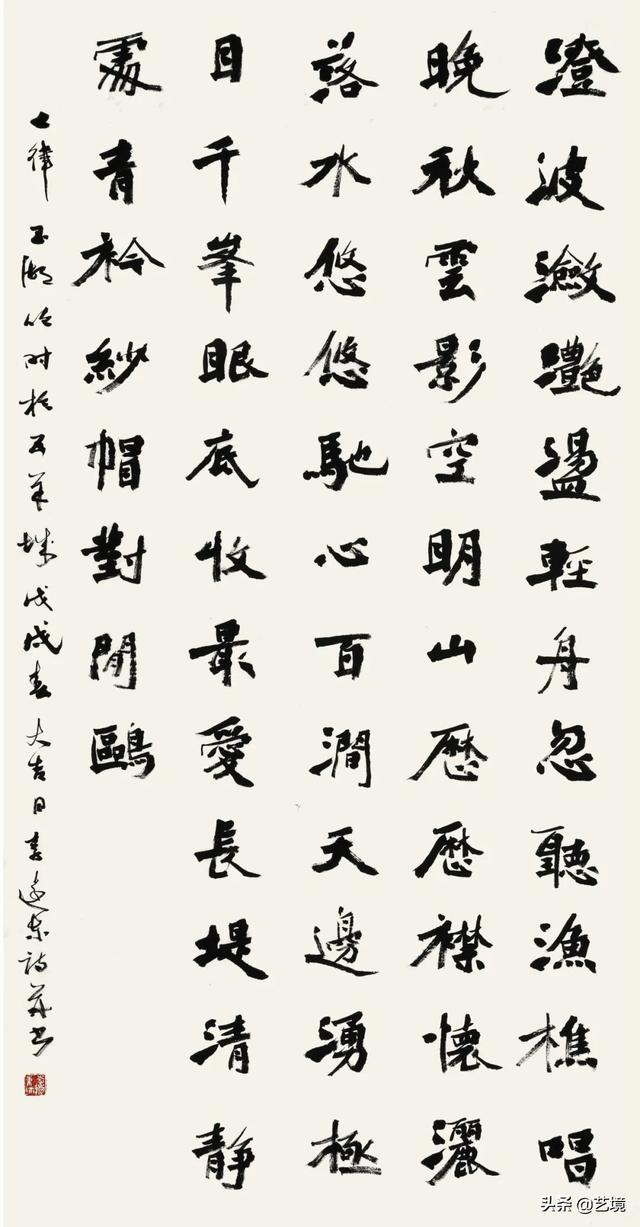 澄波瀲灩盪輕舟忽聽漁樵唱
晚秋雲影空明山歷歷襟懷灑
落水悠悠馳心百澗天邊湧極
目千峯眼底收最愛長堤清靜
處青衿紗帽對閒鷗
七律 玉湖 戊戌春大吉日李遠東詩並書
头条 @艺境